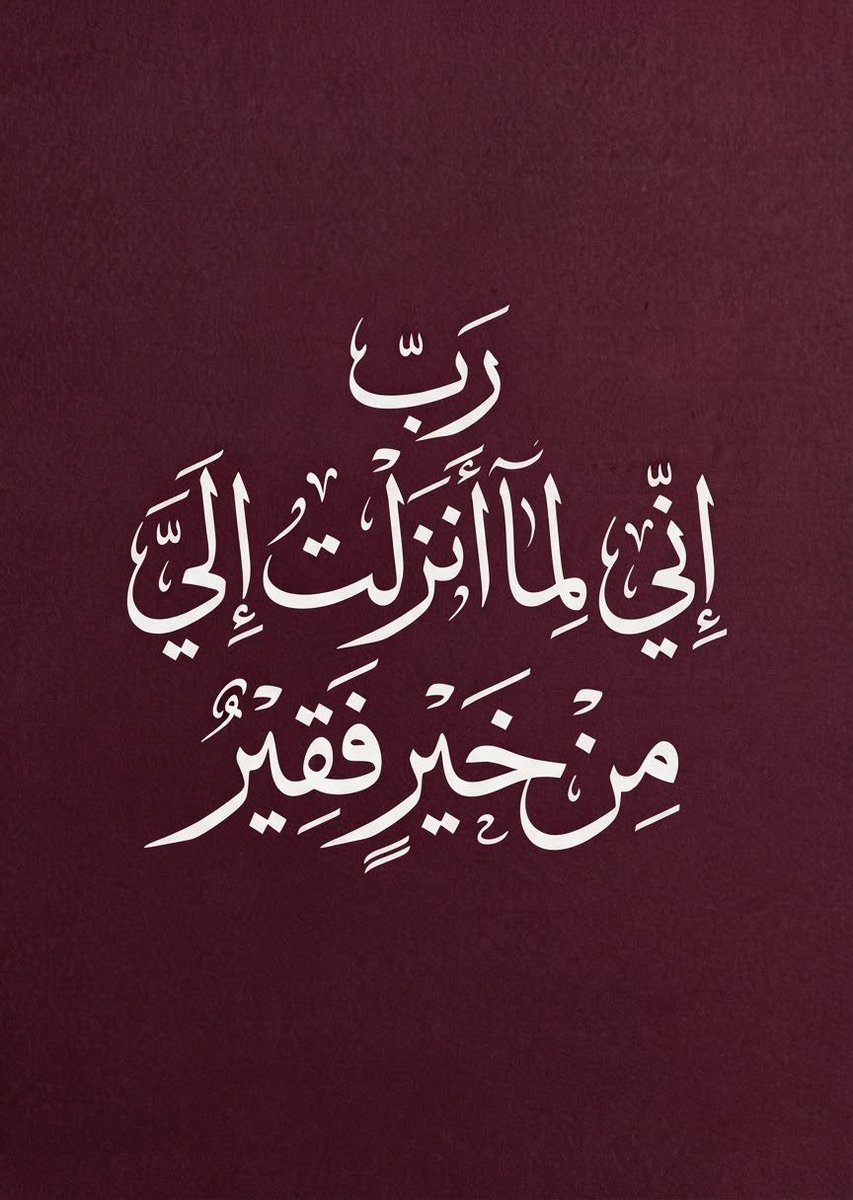 رَبّ
إِنّي لِمَآ أَنَزَلْتُ إِلَيَّ
مِنْ خَيْرٍ فَقِيْرٌ